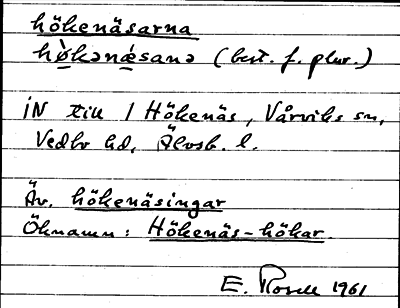 hökenäsarna
hø̀kənæ̀sanə (best. f. plur.)
iN till / Hökenäs, Vårviks sn,
Vedbo hd, Älvsb. l.
Äv. hökenäsingar
Öknamn: Hökenäs-hökar.
E. Rosell 1961